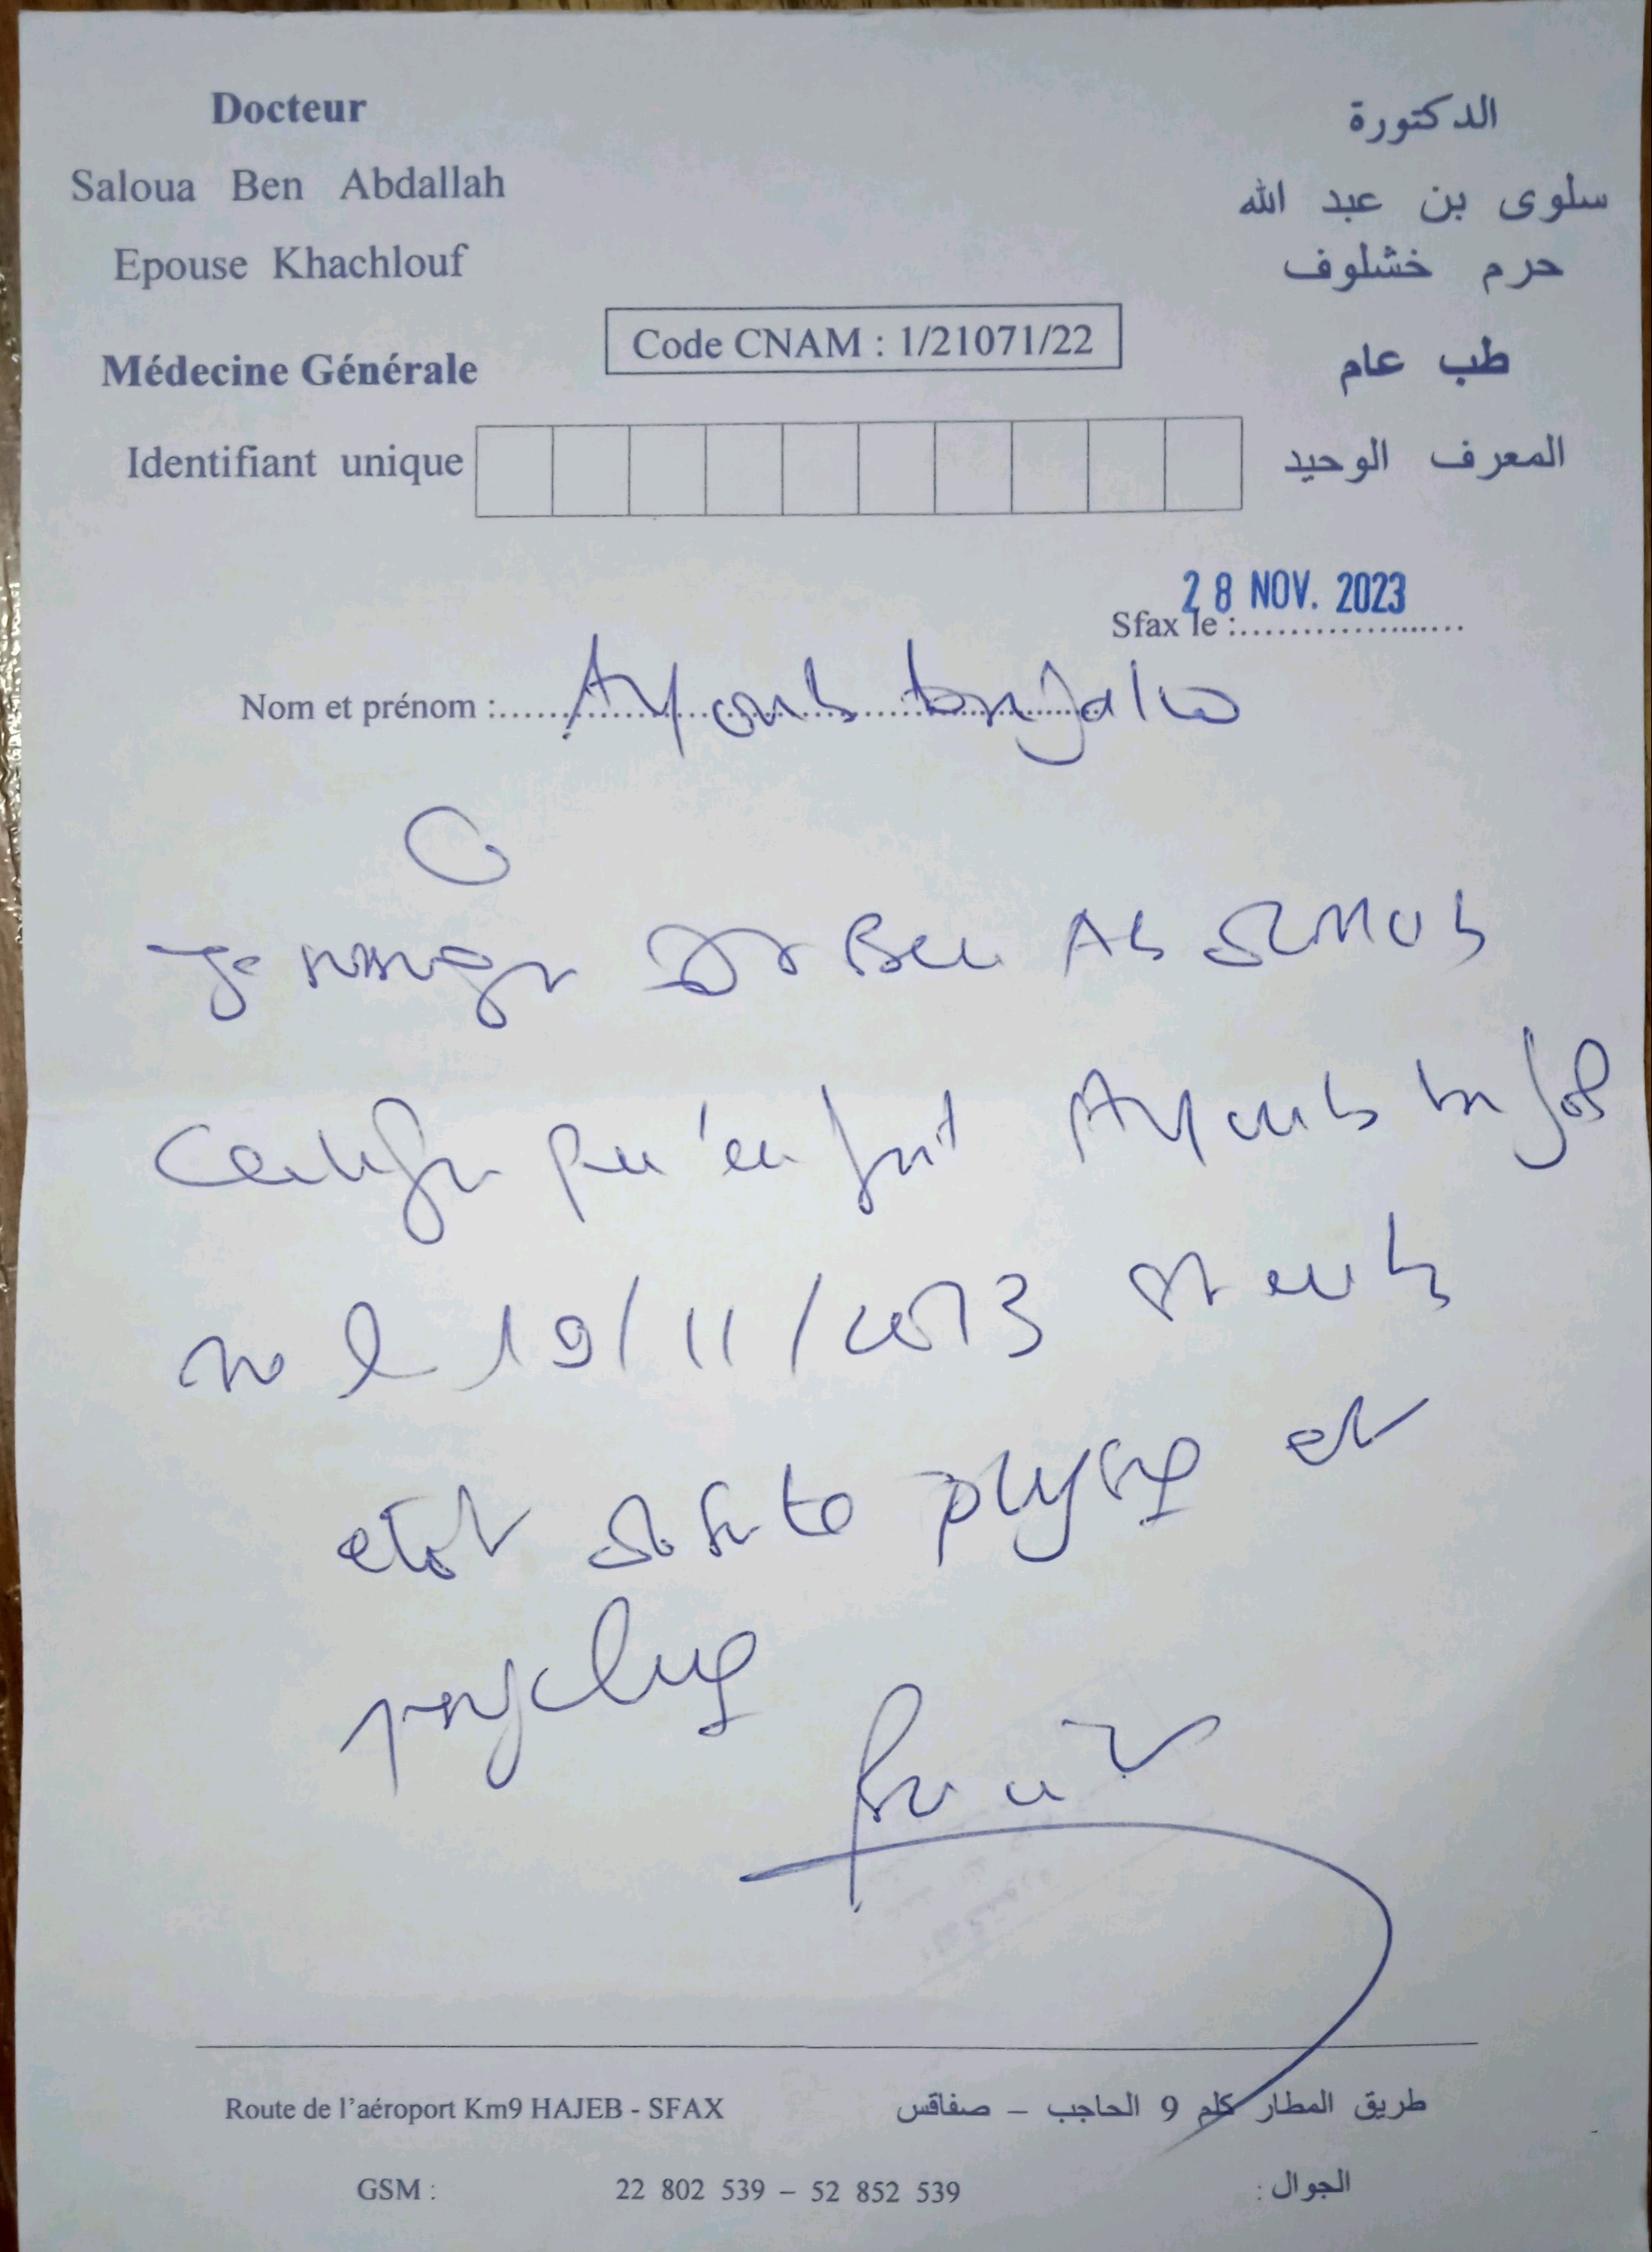 Docteur
Saloua Ben Abdallah
Epouse Khachlouf
Médecine Générale
Identifiant unique
Code CNAM : 1/21071/22
الدكتورة
سلوى بن عبد الله
حرم خشلوف
طب عام
المعرف الوحيد
28 NOV. 2023
Sfax le :
Nom et prénom : Ayoub
Je Dr Ben
Certifie Ayoub
né le 19/11/2013
etat physiq et
psychiq
Route de l'aéroport Km9 HAJEB - SFAX
طريق المطار كلم 9 الحاجب – صفاقس
GSM : 22 802 539 – 52 852 539 الجوال :